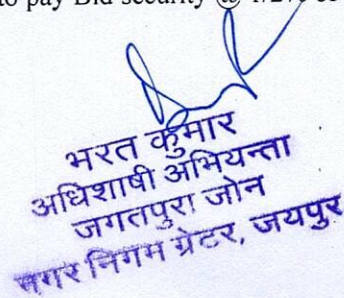 to pay Bid security @ 1/2% of
भरत कुमार
अधिशाषी अभियन्ता
जगतपुरा जोन
नगर निगम ग्रेटर, जयपुर